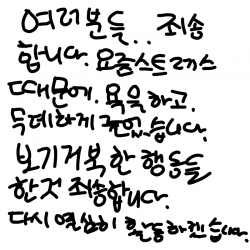 여러분들.. 죄송
합니다. 요즘스트레스
때문에. 욕을하고.
무례하게 굴었습니다.
보기거북한 행동들
한것 죄송합니다.
다시 열심히 활동하겠습니다.